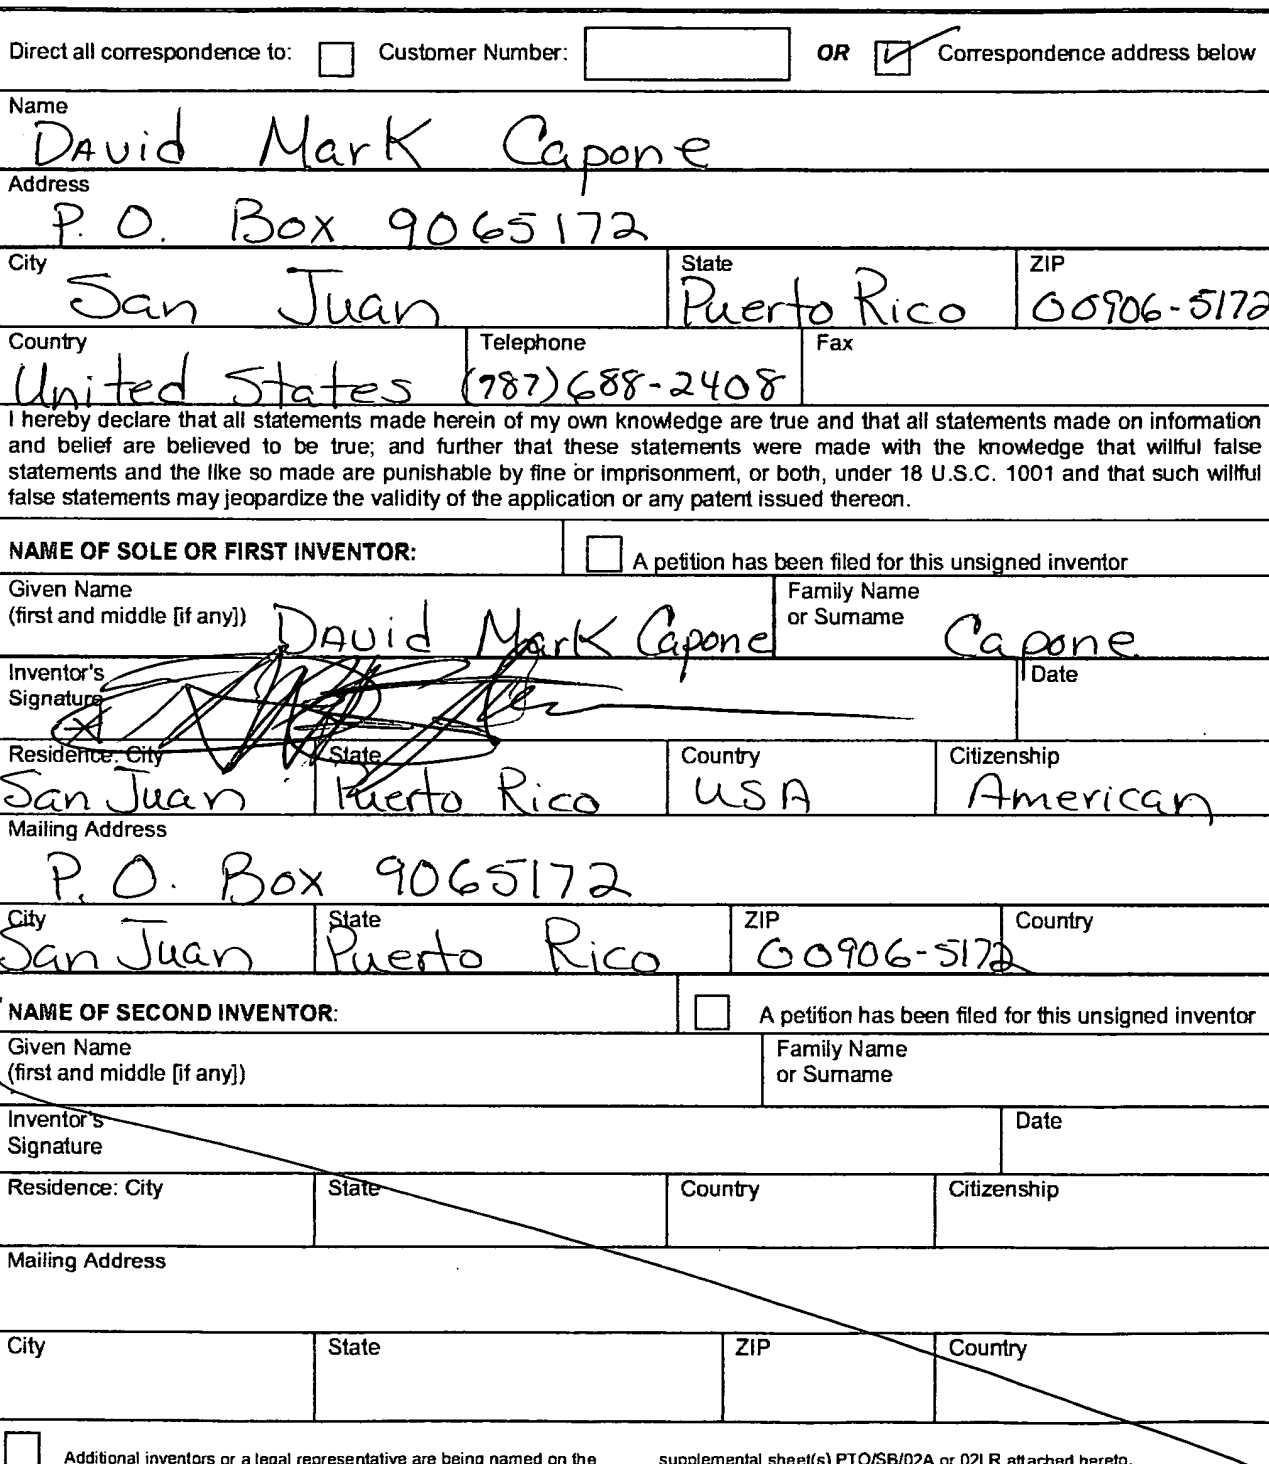 Direct all correspondence to: Customer Number: OR Correspondence address below
Name
David Mark Capone
Address
P. O. Box 9065172
City State ZIP
San Juan Puerto Rico 00906-5172
Country Telephone Fax
United States (787)688-2408
I hereby declare that all statements made herein of my own knowledge are true and that all statements made on information
and belief are believed to be true; and further that these statements were made with the knowledge that willful false
statements and the like so made are punishable by fine or imprisonment, or both, under 18 U.S.C. 1001 and that such willful
false statements may jeopardize the validity of the application or any patent issued thereon.
NAME OF SOLE OR FIRST INVENTOR: A petition has been filed for this unsigned inventor
Given Name Family Name
(first and middle [if any]) David Mark Capone or Surname Capone
Inventor's Date
Signature
Residence: City State Country Citizenship
San Juan Puerto Rico USA American
Mailing Address
P. O. Box 9065172
City State ZIP Country
San Juan Puerto Rico 00906-5172
NAME OF SECOND INVENTOR: A petition has been filed for this unsigned inventor
Given Name Family Name
(first and middle [if any]) or Surname
Inventor's Date
Signature
Residence: City State Country Citizenship
Mailing Address
City State ZIP Country
Additional inventors or a legal representative are being named on the supplemental sheet(s) PTO/SB/02A or 02LR attached hereto.